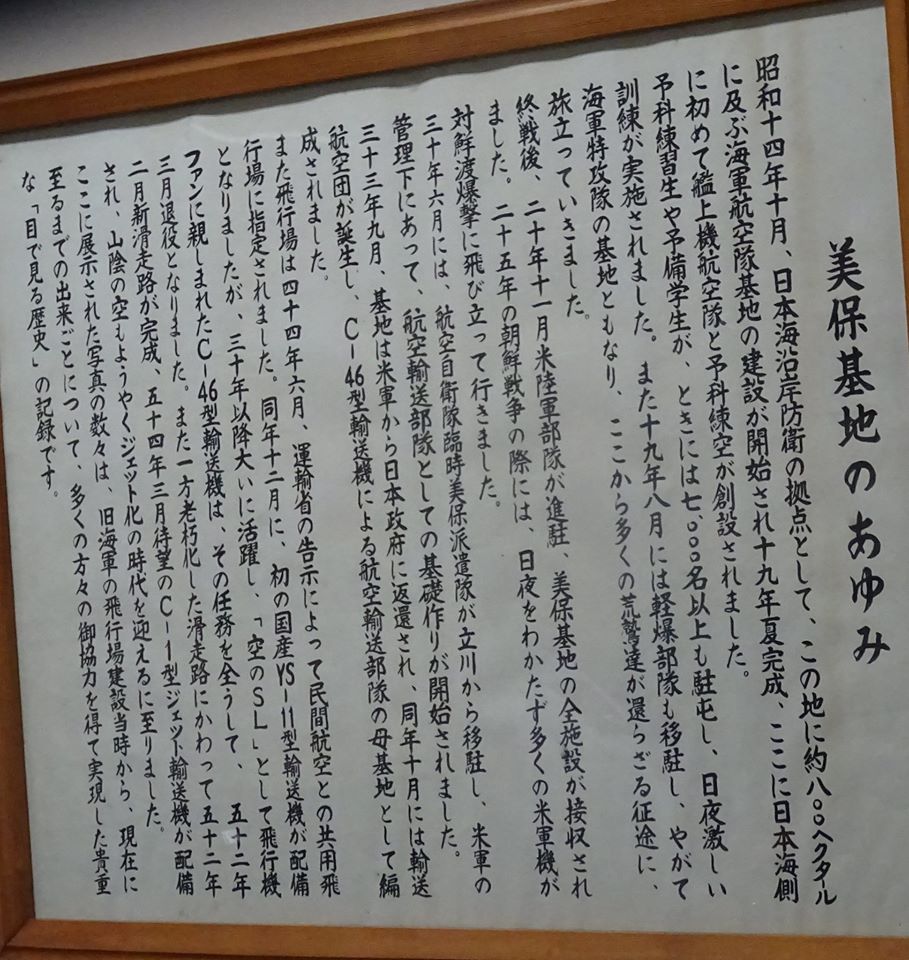 美保基地のあゆみ
昭和十四年十月、日本海沿岸防衛の拠点として、この地に約八〇〇ヘクタール
に及ぶ海軍航空隊基地の建設が開始され十九年夏完成、ここに日本海側
に初めて艦上機航空隊と予科練空が創設されました。
予科練習生や予備学生が、ときには七、〇〇〇名以上も駐屯し、日夜激しい
訓練が実施されました。また十九年八月には軽爆部隊も移駐し、やがて
海軍特攻隊の基地ともなり、ここから多くの荒鷲達が還らざる征途に、
旅立っていきました。
終戦後、二十年十一月米陸軍部隊が進駐、美保基地の全施設が接収され
ました。二十五年の朝鮮戦争の際には、日夜をわかたず多くの米軍機が
対鮮渡爆撃に飛び立って行きました。
三十年六月には、航空自衛隊臨時美保派遣隊が立川から移駐し、米軍の
管理下にあって、航空輸送部隊としての基礎作りが開始されました。
三十三年九月、基地は米軍から日本政府に返還され、同年十月には輸送
航空団が誕生し、C-46型輸送機による航空輸送部隊の母基地として編
成されました。
また飛行場は四十四年六月、運輸省の告示によって民間航空との共用飛
行場に指定されました。同年十二月に、初の国産YS-11型輸送機が配備
となりましたが、三十年以降大いに活躍し、「空のSL」として飛行機
ファンに親しまれたC-46型輸送機は、その任務を全うして、五十二年
三月退役となりました。また一方老朽化した滑走路にかわって五十二年
二月新滑走路が完成、五十四年三月待望のC-1型ジェット輸送機が配備
され、山陰の空もようやくジェット化の時代を迎えるに至りました。
ここに展示された写真の数々は、旧海軍の飛行場建設当時から、現在に
至るまでの出来ごとについて、多くの方々の御協力を得て実現した貴重
な「目で見る歴史」の記録です。